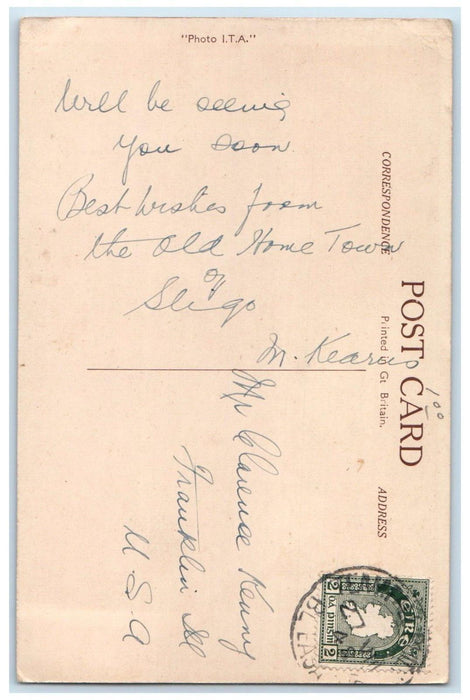 "Photo I.T.A."
Will be seeing
you soon
Best Wishes from
the Old Home Town
of
Sligo
M. Kearns
CORRESPONDENCE
POST CARD
Printed in Gt Britain.
ADDRESS
1.00
Mr Clarence Kenny
Franklin Ill
U. S. A
éire
2 2